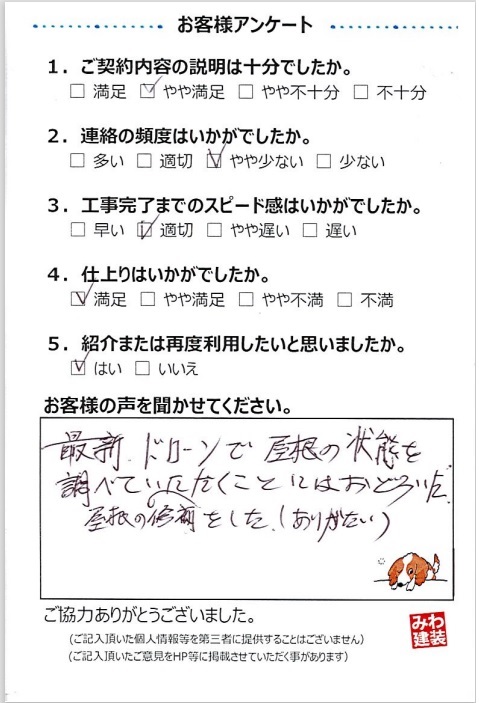 お客様アンケート
1．ご契約内容の説明は十分でしたか。
□ 満足 ☑ やや満足 □ やや不十分 □ 不十分
2．連絡の頻度はいかがでしたか。
□ 多い □ 適切 ☑ やや少ない □ 少ない
3．工事完了までのスピード感はいかがでしたか。
□ 早い ☑ 適切 □ やや遅い □ 遅い
4．仕上りはいかがでしたか。
☑ 満足 □ やや満足 □ やや不満 □ 不満
5．紹介または再度利用したいと思いましたか。
☑ はい □ いいえ
お客様の声を聞かせてください。
最新 ドローンで 屋根の状態を
調べていただくことにはおどろいた
屋根の修繕をした（ありがたい）
ご協力ありがとうございました。
(ご記入頂いた個人情報等を第三者に提供することはございません)
(ご記入頂いたご意見をHP等に掲載させていただく事があります)
みわ
建装